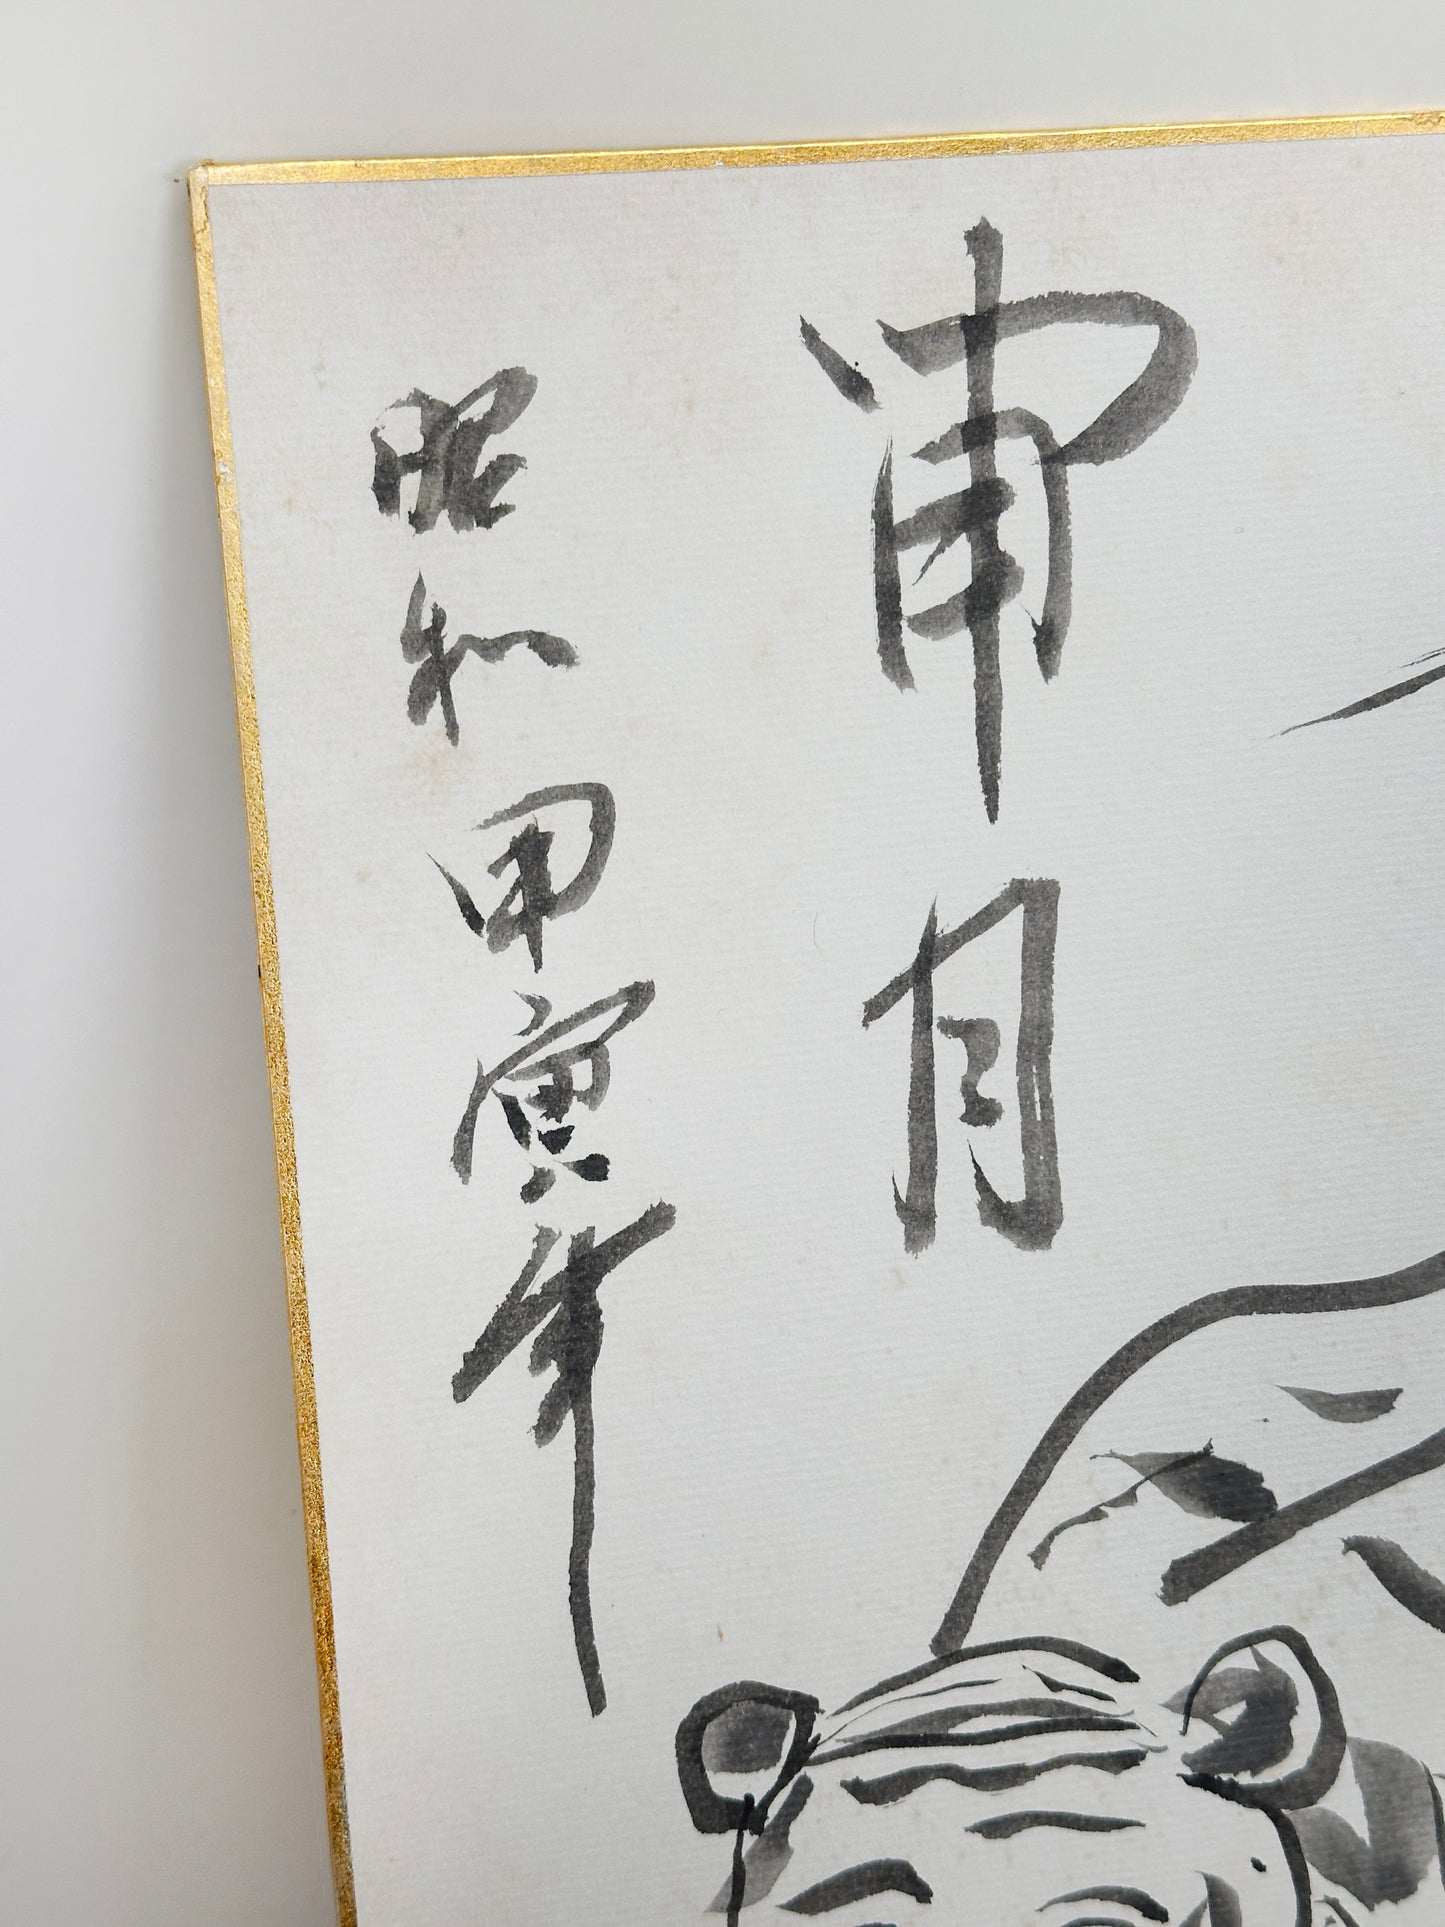 嘯月
昭和甲寅年